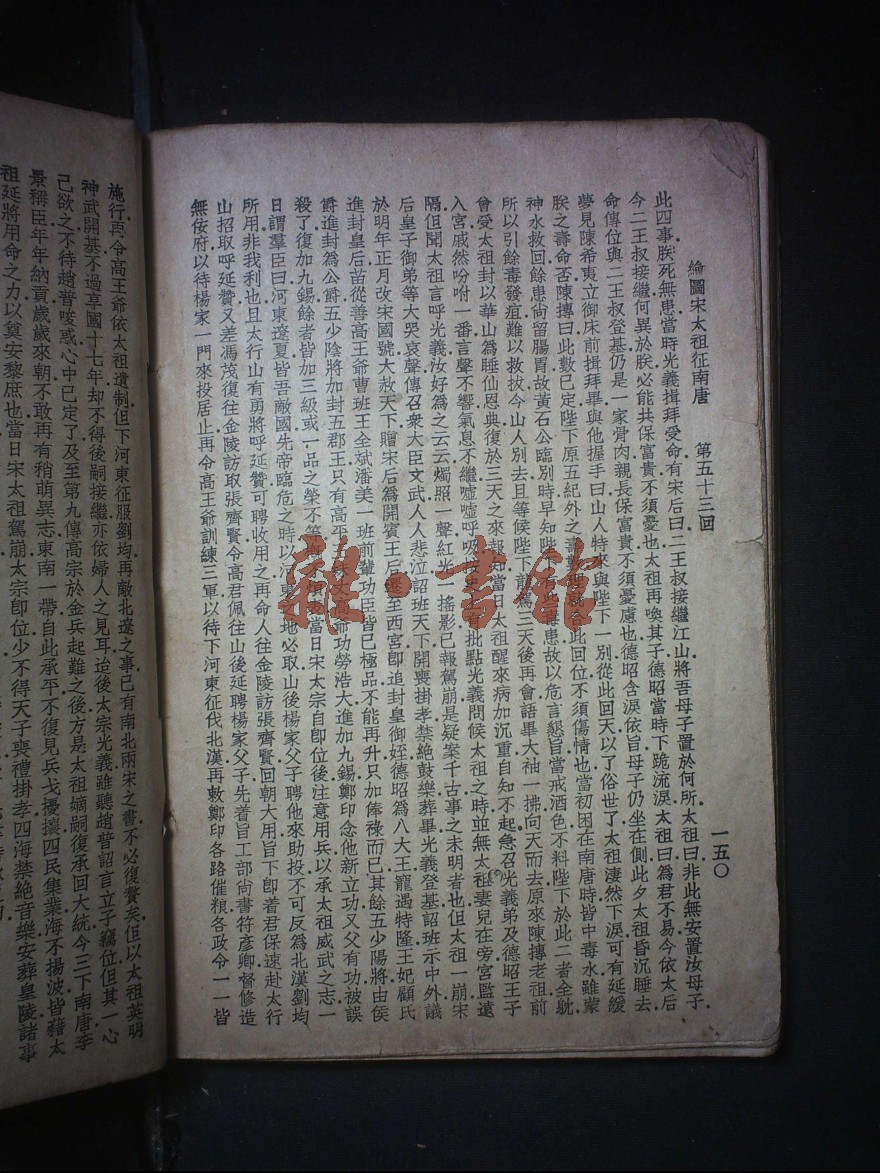 繪圖宋太祖征南唐　第五十三回　一五〇
此四事朕死無患當時光義揖拜受命有宋后曰二王叔接繼江山將吾母子置於何所太祖曰非此無安置汝母子
今二王叔接繼何異於朕必能共保富貴不須憂也太祖再喚其子德昭當時下跪流淚太祖曰爲君不易今依太后
命傳位與二王叔登基仍是一家骨肉親長保富貴不須憂慮也德昭含淚依旨母子仍坐在側此夕太祖昏沉睡去
夢見陳希夷立御床前揖拜畢與他握手曰山人特來與陛下一別從此回天以了俗世了太祖淒然下淚可有延緩
朕之壽命否陳摶曰此數已定陛下原五紀外之壽數理該合此回位不須傷情也當初困在南唐時皆中毒水雖蒙
神水救回餘患尙留腸胃故黃石公臨別時早知陛下有些毒患故以危言懇旨當戒酒色不料陛下於此二者全躭
所以引餘毒發疽難以救拔今山人別去且等候陛下前駕三天後再會語畢大袖一拂向天而去原來陳摶老祖前
曾受太祖封以華山爲睡仙恩典復於三天之來報知當日太祖醒來病加沉重自知不起急召光義弟及德昭王子
入宮戚然吩咐一番言聲不響氣息不繼噓噓呼吸以史上有批點光義問候太祖之時並無太祖妻兒在旁宮監遠
隔但聞太祖言呼光義汝好為之云云燭照一聲紅光一搖影已報駕崩是疑案千古事之未明者也但太祖一崩宋
后皇子御弟等大哭哀聲傳召衆大臣文武人人悲泣詔班天下開喪掛孝禁絶鼓樂葬畢光義登基詔班示中外議
於明年正月改宋國號大赦天下贈宋后爲開寶王后遷至西宮卽追封皇御姪德昭爲八大王寵遇特隆王妃顧氏
進封皇后苗從善高王爺曹班王全斌潘美一班前輩功臣皆已極品不能再升只加俸祿而已其餘五少陽將由侯
爵進封爲公爵五少陰將加封五郡王只有高平王與父高爺功勞浩大進加九錫鄭印念他新立功又父有功被誤
殺了復加七錫餘者皆加三級或一品之榮不等 當日宋太宗自卽位後注意用兵以承太祖威武之志一
日謂羣臣曰河東遼夏皆吾敵國先帝臨危之時以河東之地必取山後楊家父子聘他來助投不可反爲北漢劉均
所用非我利也且太行山有勇將呼延贊可聘收用之再命人往金陵訪張齊賢回朝大用旨下卽着君保速赴太行
山招取呼延贊又差馮茂復往金陵訪取張齊賢令高君佩往山後延聘楊家父子先着旨工部尙書符彥卿督修造
無佞府以待楊家一門來投居止再令高王爺訓練三軍以待下河東征伐北漢再敕鄭印各路催粮各政令一一皆
施行再令高王爺依太祖遺制但下河東征服劉均再敵北遼之事已有南北兩宋之書不必復贅矣但以太祖英明
神武開基不過享國十七年却不得後嗣接繼亦依婦人之見耳迨後太宗光義雖聽趙普諂言立子竊位但其一心
己欲之不待趙普唆惑心中已定了及至第九傳高宗於金兵起難之後方是太祖嫡嗣復承回大統今三下南唐李
景稱臣年年納貢歲歲來朝不敢再有稍萌異志東南一帶自此承平不復見兵戈擾攘四民集業海不揚波皆藉太
祖延將用命之力以奠安黎庶也當日宋太祖駕崩太宗卽位少不得天子喪禮掛孝四海禁絶音樂安葬皇陵諸事
雜·書館